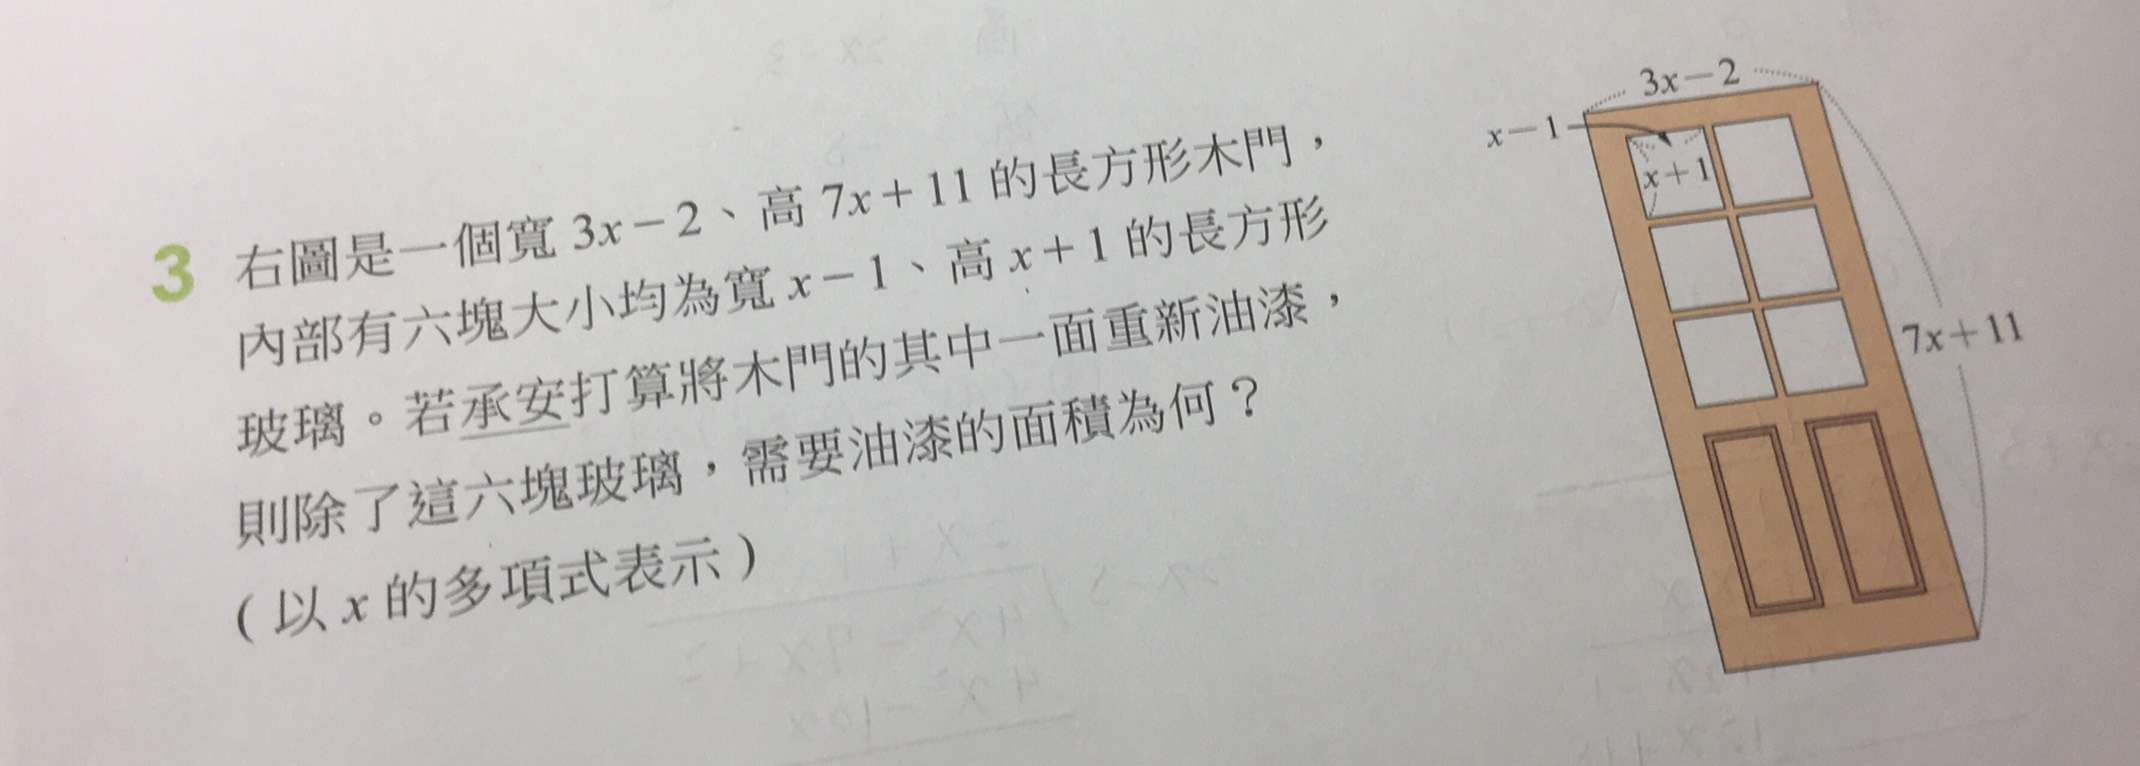 3 右圖是一個寬 3x－2、高 7x＋11 的長方形木門，
內部有六塊大小均為寬 x－1、高 x＋1 的長方形
玻璃。若承安打算將木門的其中一面重新油漆，
則除了這六塊玻璃，需要油漆的面積為何？
(以 x 的多項式表示)
3x－2
x－1
x＋1
7x＋11